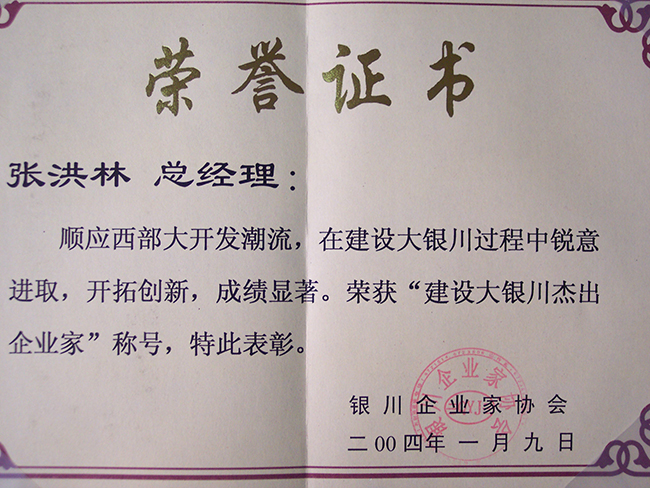 荣誉证书
张洪林 总经理：
顺应西部大开发潮流，在建设大银川过程中锐意
进取，开拓创新，成绩显著。荣获“建设大银川杰出
企业家”称号，特此表彰。
银川企业家协会
二00四年一月九日
银川企业家协会